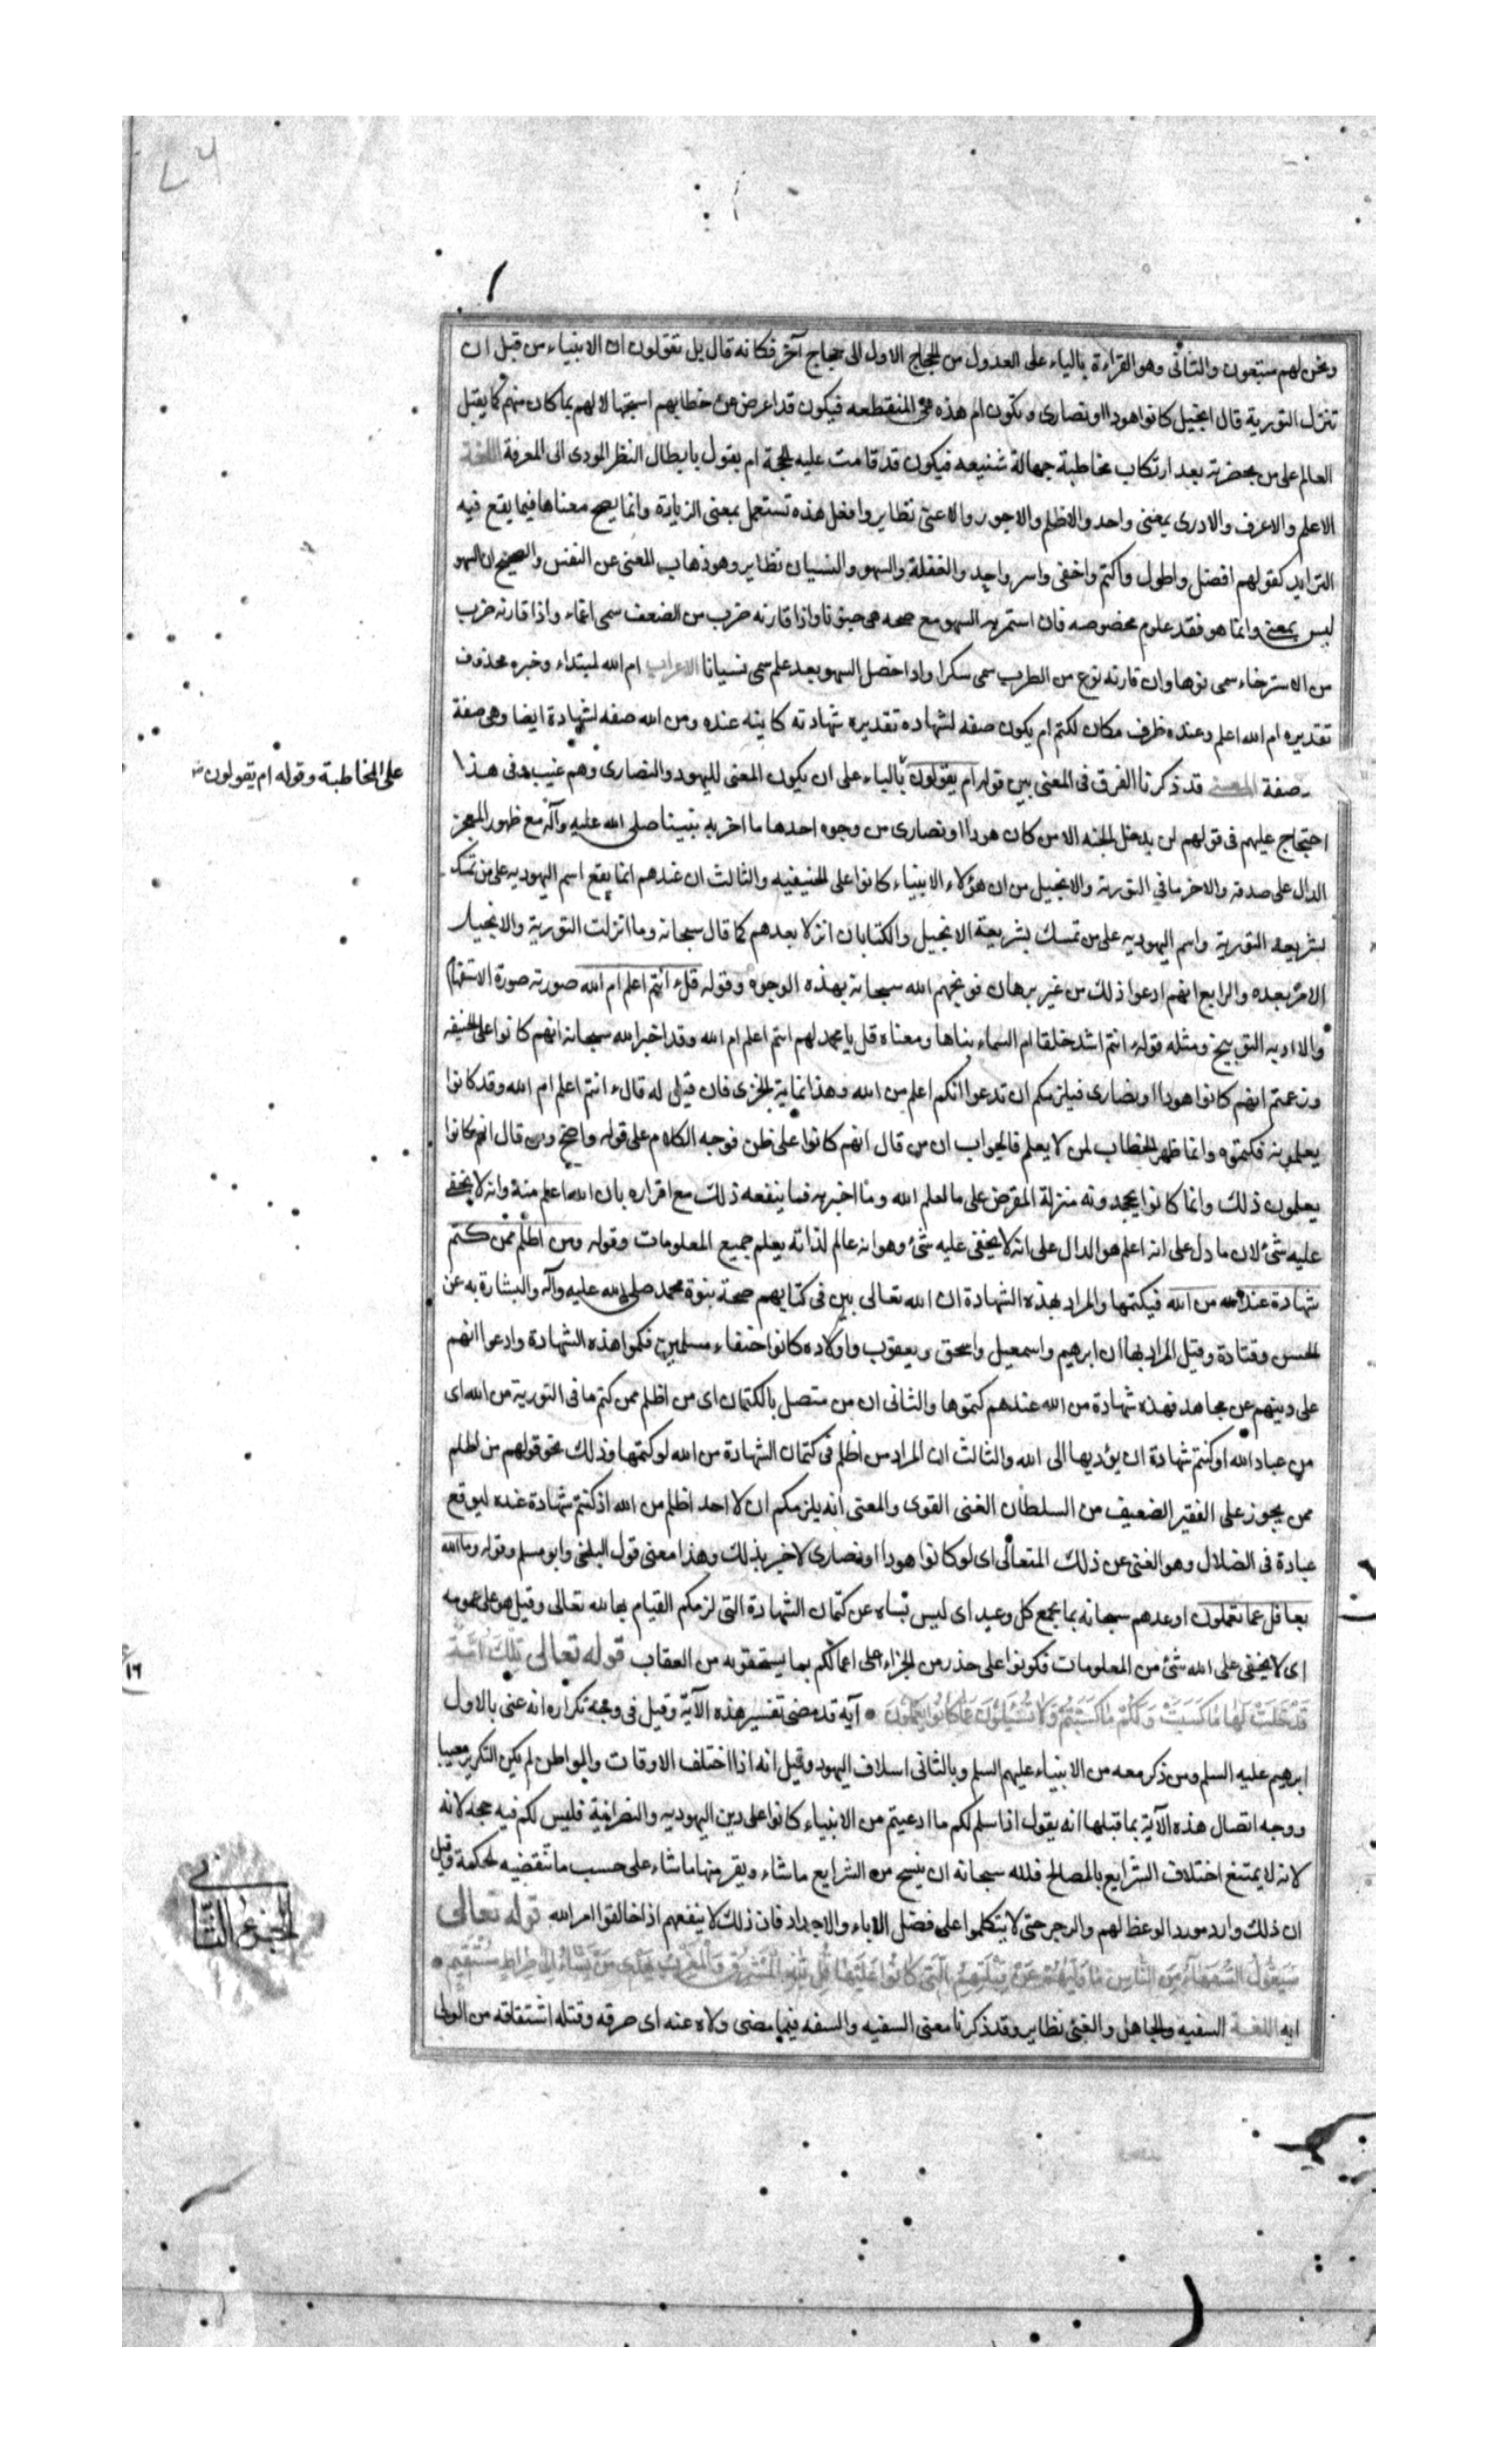 ونحن لهم متبعون والثاني وهو القراءة بالياء على العدول من الحجاج الاول الى حجاج آخر فكانه قال بل تقولون ان الانبياء من قبل ان
تنزل التورية قال انجيل كانوا هودا او نصارى و تكون ام هذه هى المنقطعه فيكون قد اعرض عن خطابهم استجهالا لهم بما كان منهم كما يقبل
العالم على من بحضرته بعد ارتكاب مخاطبة جهالة شنيعه فيكون قد قامت عليه الحجة ام يقول بابطال النظر المودى الى المعرفة اللغة
الاعلم والاعرف والادرى بمعنى واحد والاظلم والاجور والاعتى نظاير وافعل هذه تستعمل بمعنى الزيادة وانما يصح معناها فيما يقع فيه
التزايد كقولهم افضل واطول واكتم واخفى واسر واحد والغفلة والسهو والنسيان نظاير وهو ذهاب المعنى عن النفس والصحيح ان السهو
ليس بمعنى وانما هو فقد علوم مخصوصه فان استمر به السهو مع صحه سمى جنونا واذا قارنه ضرب من الضعف سمى اغماء واذا قارنه ضرب
من الاسترخاء سمى نوما وان قارنه نوع من الطرب سمى سكرا واذا حصل السهو بعد علم سمى نسيانا الاعراب ام الله لمبتداء وخبره محذوف
تقديره ام الله اعلم وعنده ظرف مكان لكتم ام يكون صفه لشهاده تقديره شهادته كاينه عنده ومن الله صفه لشهادة ايضا وهى صفة
صفة المعنى قد ذكرنا الفرق فى المعنى بين قوله ام يقولون بالياء على ان يكون المعنى لليهود والنصارى وهم غيب وفى هذا
على المخاطبة وقوله ام يقولون
احتجاج عليهم فى قولهم لن يدخل الجنه الا من كان هودا او نصارى من وجوه احدها ما اخر به نبينا صلى الله عليه وآله مع ظهور المعجز
الدال على صدقه والاخر ما في التورية والانجيل من ان هؤلاء الانبياء كانوا على الحنيفيه والثالث ان عندهم انما يقع اسم اليهوديه على من تمسك
بشريعه التورية واسم اليهوديه على من تمسك بشريعة الانجيل والكتابان انزلا بعدهم كما قال سبحانه وما انزلت التورية والانجيل
الا من بعده والرابع انهم ادعوا ذلك من غير برهان فوبخهم الله سبحانه بهذه الوجوه وقوله قل ء انتم اعلم ام الله صورته صورة الاستفهام
والمراد به التوبيخ ومثله قوله ء انتم اشد خلقا ام السماء بناها ومعناه قل يا محمد لهم ءانتم اعلم ام الله وقد اخبر الله سبحانه انهم كانوا على الحنيفيه
وزعمتم انهم كانوا هودا او نصارى فيلزمكم ان تدعوا انكم اعلم من الله وهذا نهاية الخزى فان قيل له قال ء انتم اعلم ام الله وقد كانوا
يعلمونه فكتموه وانما ظهر الخطاب لمن لا يعلم فالجواب ان من قال انهم كانوا على ظن فوجه الكلام على قوله واضح ومن قال انهم كانوا
يعلمون ذلك وانما كانوا يجحدونه منزلة المقرض على ما لعلم الله وما اخبر به فما ينفعه ذلك مع اقراره بان الله اعلم منه وانه لا يخفى
عليه شئ لان ما دل على انه اعلم هو الدال على انه لا يخفى عليه شئ وهو انه عالم لذاته يعلم جميع المعلومات وقوله ومن اظلم ممن كتم
شهادة عنده من الله فيكتمها والمراد بهذه الشهادة ان الله تعالى بين فى كتابهم صحة بنوة محمد صلى الله عليه وآله والبشارة به عن
الحسن وقتادة وقيل المراد بها ان ابرهيم واسمعيل واسحق ويعقوب واولاده كانوا حنفاء مسلمين فكتموا هذه الشهادة وادعوا انهم
على دينهم عن مجاهد فهذه شهادة من الله عندهم كتموها والثانى ان من متصل بالكتمان اى من اظلم ممن كتم ما فى التورية من الله اى
من عباد الله او كتم شهادة ان يؤديها الى الله والثالث ان المراد من اظلم فى كتمان الشهادة من الله لو كتمها وذلك نحو قولهم من اظلم
ممن يجوز على الفقير الضعيف من السلطان الغنى القوى والمعنى انه يلزمكم ان لا احد اظلم من الله اذ كتم شهادة عنده ليوقع
عبادة فى الضلال وهو الغنى عن ذلك المتعالى اى لو كانوا هودا او نصارى لاخبر بذلك وهذا معنى قول البلخى وابو مسلم وقوله وما الله
بغافل عما تعملون اوعدهم سبحانه بما يجمع كل وعيد اى ليس بساه عن كتمان الشهادة التى لزمكم القيام بها لله تعالى وقيل هو على عمومه
اى لا يخفى على الله شئ من المعلومات فكونوا على حذر من الجزاء على اعمالكم بما يستحقونه من العقاب قوله تعالى تلك امة
١٦
قد خلت لها ما كسبت ولكم ما كسبتم ولا تسئلون عما كانوا يعملون آية قد مضى تفسير هذه الآية وقيل فى وجه تكراره انه عنى بالاول
ابرهيم عليه السلم ومن ذكر معه من الانبياء عليهم السلم وبالثانى اسلاف اليهود وقيل انه اذا اختلف الاوقات والمواطن لم يكن التكرير معيبا
ووجه اتصال هذه الآية بما قبلها انه يقول اذا سلم لكم ما ادعيتم من الانبياء كانوا على دين اليهوديه والنصرانية فليس لكم فيه حجه لانه
لانه لا يمتنع اختلاف الشرايع بالمصالح فلله سبحانه ان ينسخ من الشرايع ما شاء ويقر منها ما شاء على حسب ما تقتضيه الحكمة وقيل
ان ذلك وارد مورد الوعظ لهم والزجر حتى لا يتكلموا على فضل الاباء والاجداد فان ذلك لا ينفعهم اذا خالفوا امر الله قوله تعالى
الجزء الثانى
سيقول السفهاء من الناس ما وليهم عن قبلتهم التى كانوا عليها قل لله المشرق والمغرب يهدى من يشاء الى صراط مستقيم
ايه اللغة السفيه والجاهل والغبى نظاير وقد ذكرنا معنى السفيه والسفه فيما مضى ولاه عنه اى صرفه وفتله اشتقاقه من الولى